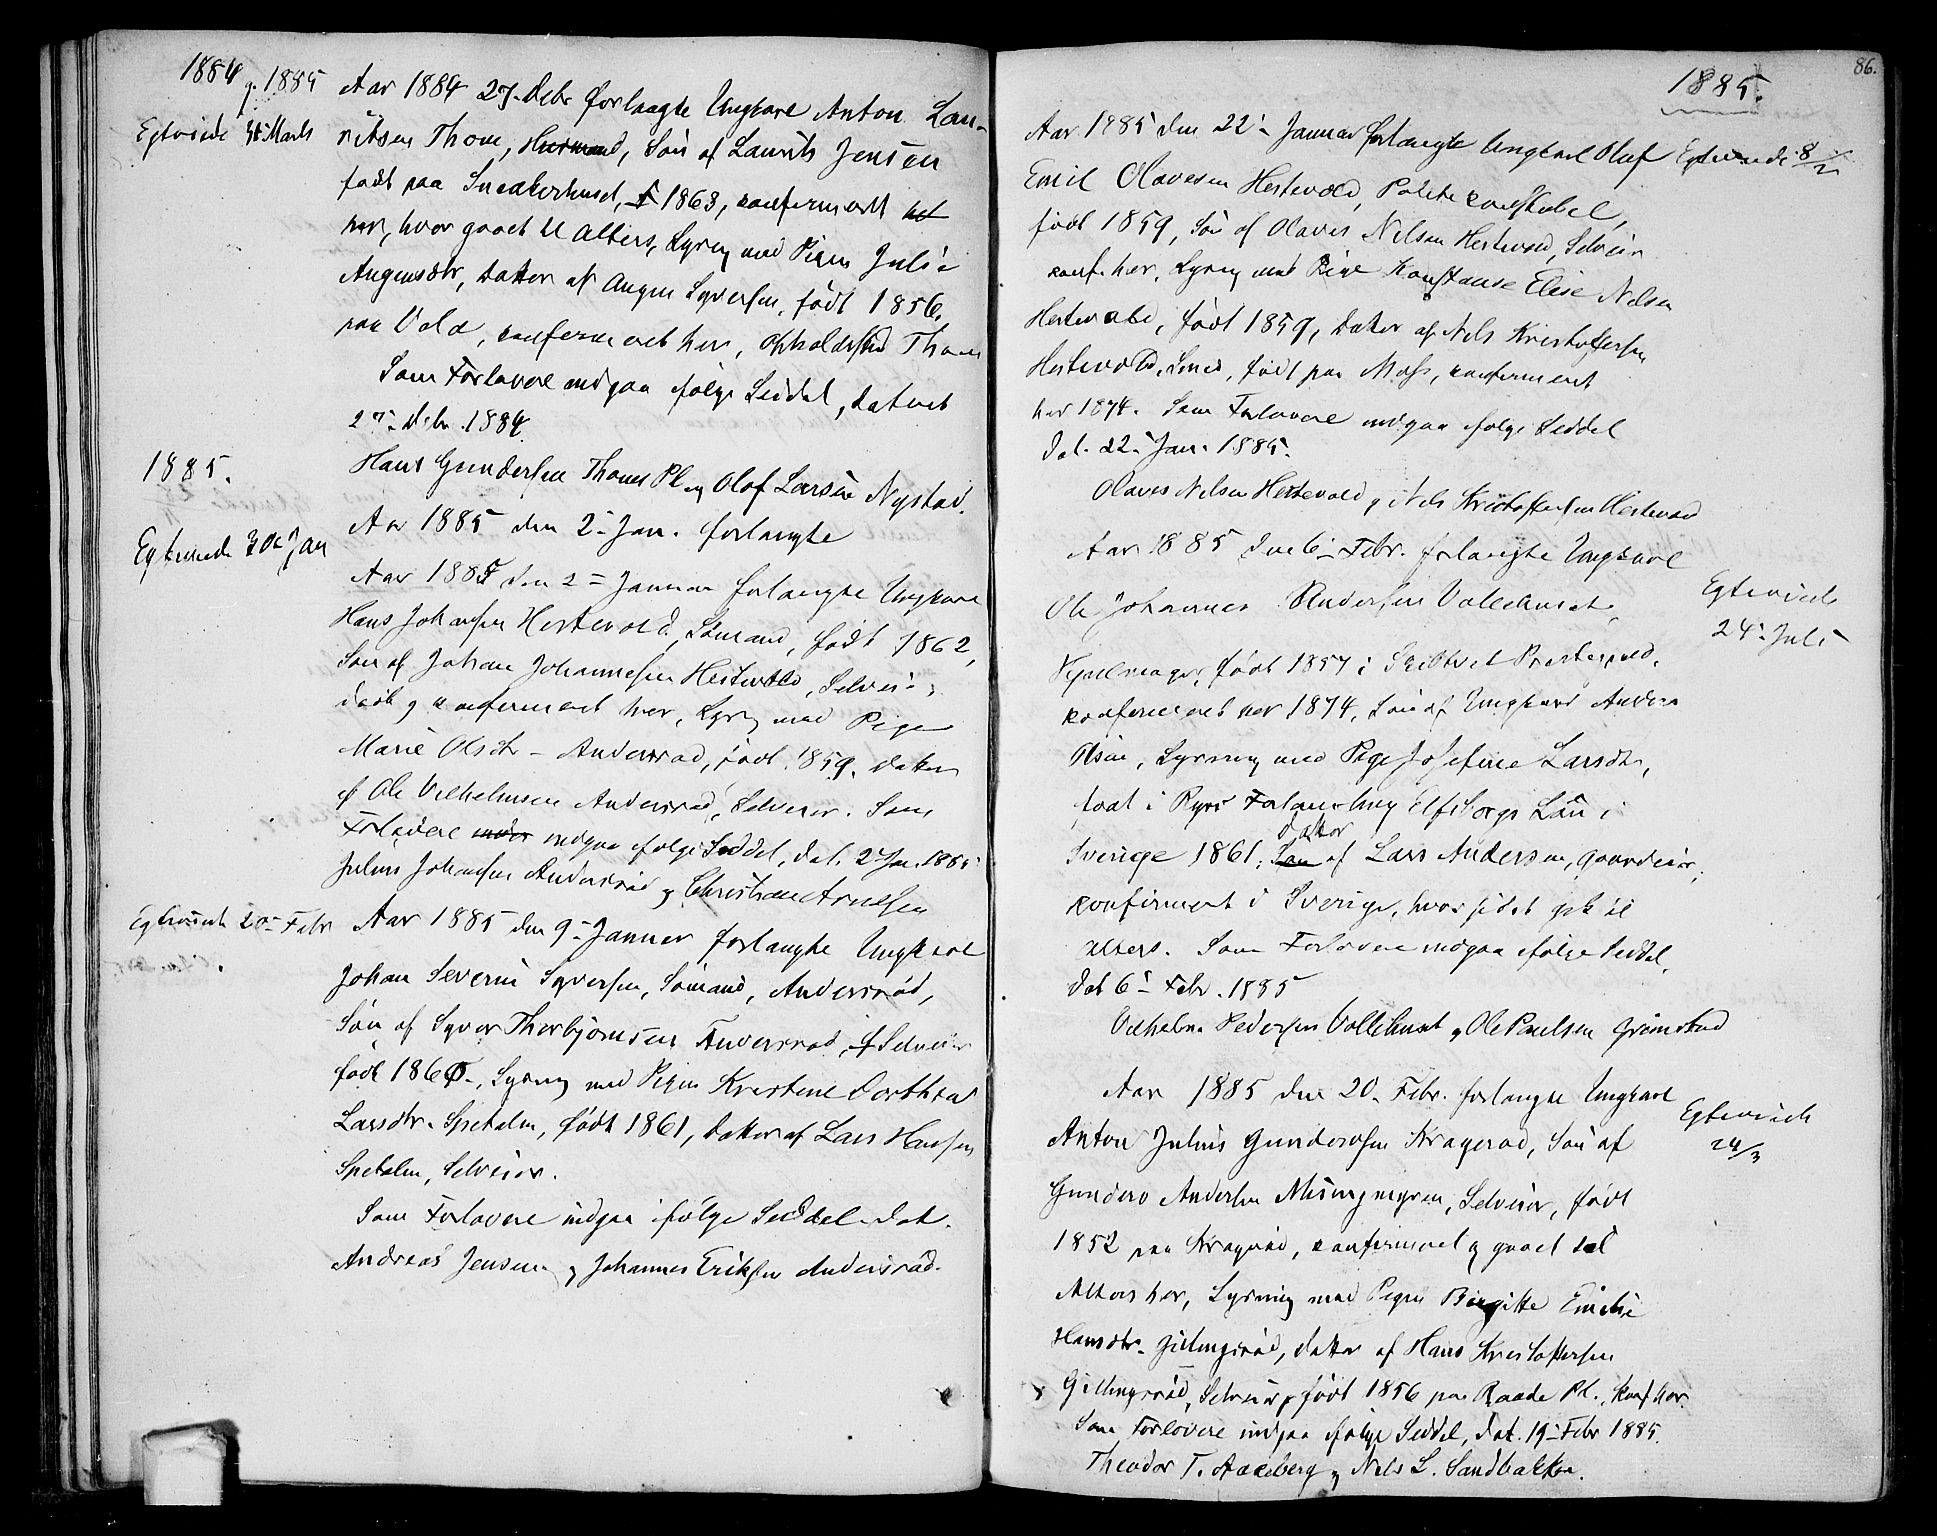 1884 g. 1885
Egtviede 31 Marts
Aar 1884 27- Debr forlangte Ungkarl Anton Lau-
ritsen Thom, Husmand, Sön af Laurits Jensen
født paa Snedkerhuset, f 1863, confirmeret het
her, hvor gaaet til Alters, Lysng med Pigen Julie
Augensdtr, Datter af Augen Syversen, født 1856.
paa Vold, confirmeret her, Opholdssted Thom
Som Forlovere indgaa ifølge Seddel, dateret
27- Debr. 1884.
Hans Gundersen Thoms Pl. og Olof Larsen Nystad.
1885.
Aar 1885 den 2- Jan. forlangte
Egteviede 30te Jan
Aar 1885 den 2- Januar forlangte Ungkarl
Hans Johansen Hestevold, Sömand, født 1862,
Sön af Johan Johannesen Hestevold, Selveier,
døbt og confirmeret her, Lysng med Pigen
Marie Olsdtr - Andersrød, født 1859. datter
af Ole Vilhelmsen Andersrød, Selveier. Som
Forlovere indgaa ifølge Seddel, dat. 2 Jan. 1885
Julius Johansen Andersrød og Christian Arnesen
Egteviede 20- Febr
Aar 1885 den 9- Januar forlangte Ungkarl
Johan Severin Syversen, Sömand, Andersröd,
Sön af Syver Thorbjörnsen Andersrød, f Selveier
født 1860-, Lysng med Pigen Kristine Dorthea
Larsdtr. Spetalen, født 1861, Datter af Lars Hansen
Spetalen, Selveier.
Som Forlovere indgaa ifølge Seddel dat.
Andreas Jensen og Johannes Eriksen Andersröd.
86.
1885.
Aar 1885 den 22- Januar forlangte Ungkarl Olaf
Egteviede 8/2
Emil Olavesen Hestevold, Politi constabel,
født 1859, Sön af Olaves Nilsen Hestevold, Selveier
conf. her, Lysng med Pige Konstanse Elise Nilsen
Hestevold, født 1859, Datter af Nils Kristoffersen
Hestevold, Smed, født paa Moss, confirmeret
her 1874. Som Forlovere indgaa ifølge Seddel
dat. 22- Jan. 1885.
Olaves Nilsen Hestevold og Nils Kristoffersen Hestevold
Aar 1885 den 6- Febr. forlangte Ungkarl
Egteviede
24- Juli
Ole Johannes Andersen Vollehuset,
født 1857 i Skibtvet Prestegjeld,
confirmeret her 1874, Sön af Ungkarl Anders
Olsen, Lysning med Pige Josefine Larsdtr,
født i Ryrs Forsamling Elfsborgs Län i
Sverige 1861, Sön datter af Lars Anderson, gaardeier,
confirmert i Sverige, hvor sidst gik til
alters. Som Forlovere indgaa ifølge Seddel,
dat 6- Febr. 1885
Vilhelm Pedersen Vollehuset og Ole Paulsen Grimstad
Aar 1885 den 20- Febr. forlangte Ungkarl
Egteviede
24/3
Anton Julius Gundersen Kragerød, Sön af
Gunder Andersen Misingmyren, Selveier, født
1852 paa Kragrød, confirmeret og gaaet til
Alters her, Lysning med Pigen Birgitte Emilie
Hansdtr. Gillingsrød, datter af Hans Kristoffersen
Gillingsrød, Selveier, født 1856 paa Raade Pl., Konf her.
Som Forlovere indgaa ifølge Seddel, dat. 19- Febr 1885.
Theodor T. Aaseberg og Nils L. Sandbakken.